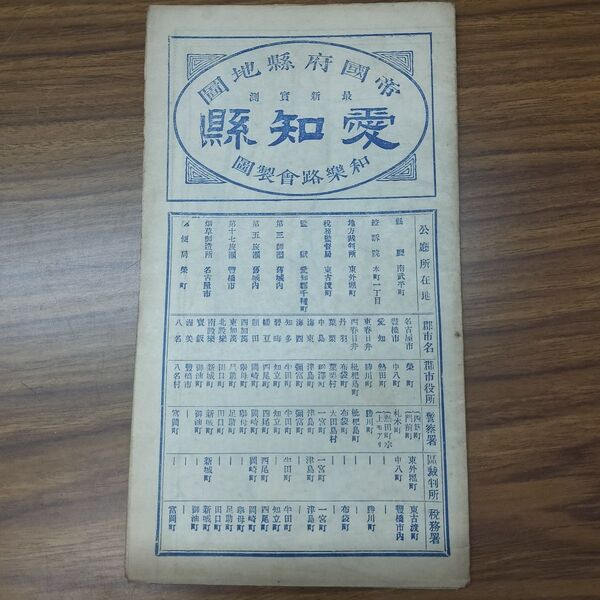 帝國府縣地圖
最新實測
愛知縣
和樂路會製圖
公廳所在地
縣廳 南武平町
控訴院 木町一丁目
地方裁判所 東外堀町
稅務監督局 東古渡町
監獄 愛知郡千種町
第三師團 舊城內
第五旅團 舊城內
第十七旅團 豐橋市
煙草製造所 名古屋市
便局 榮町
郡市名
名古屋市
豐橋市
愛知
東春日井
西春日井
丹羽
葉栗
中島
海東
海西
知多
碧海
幡豆
額田
西加茂
東加茂
北設樂
南設樂
寶飯
渥美
八名
郡市役所
榮町
中八町
熱田町
勝川町
枇杷島町
布袋町
葉栗村
稻澤町
津島町
彌富町
半田町
知立町
西尾町
岡崎町
擧母町
足助町
田口町
新城町
御油町
豐橋市
八名村
警察署
門前町
札木町
勝川町
枇杷島町
布袋町
太田島村
一宮町
津島町
彌富町
半田町
知立町
西尾町
岡崎町
擧母町
足助町
田口町
新城町
御油町
富岡町
區裁判所
東外堀町
中八町
一宮町
津島町
半田町
西尾町
岡崎町
新城町
稅務署
東古渡町
豐橋市內
勝川町
布袋町
一宮町
津島町
半田町
知立町
西尾町
岡崎町
擧母町
足助町
田口町
新城町
御油町
富岡町